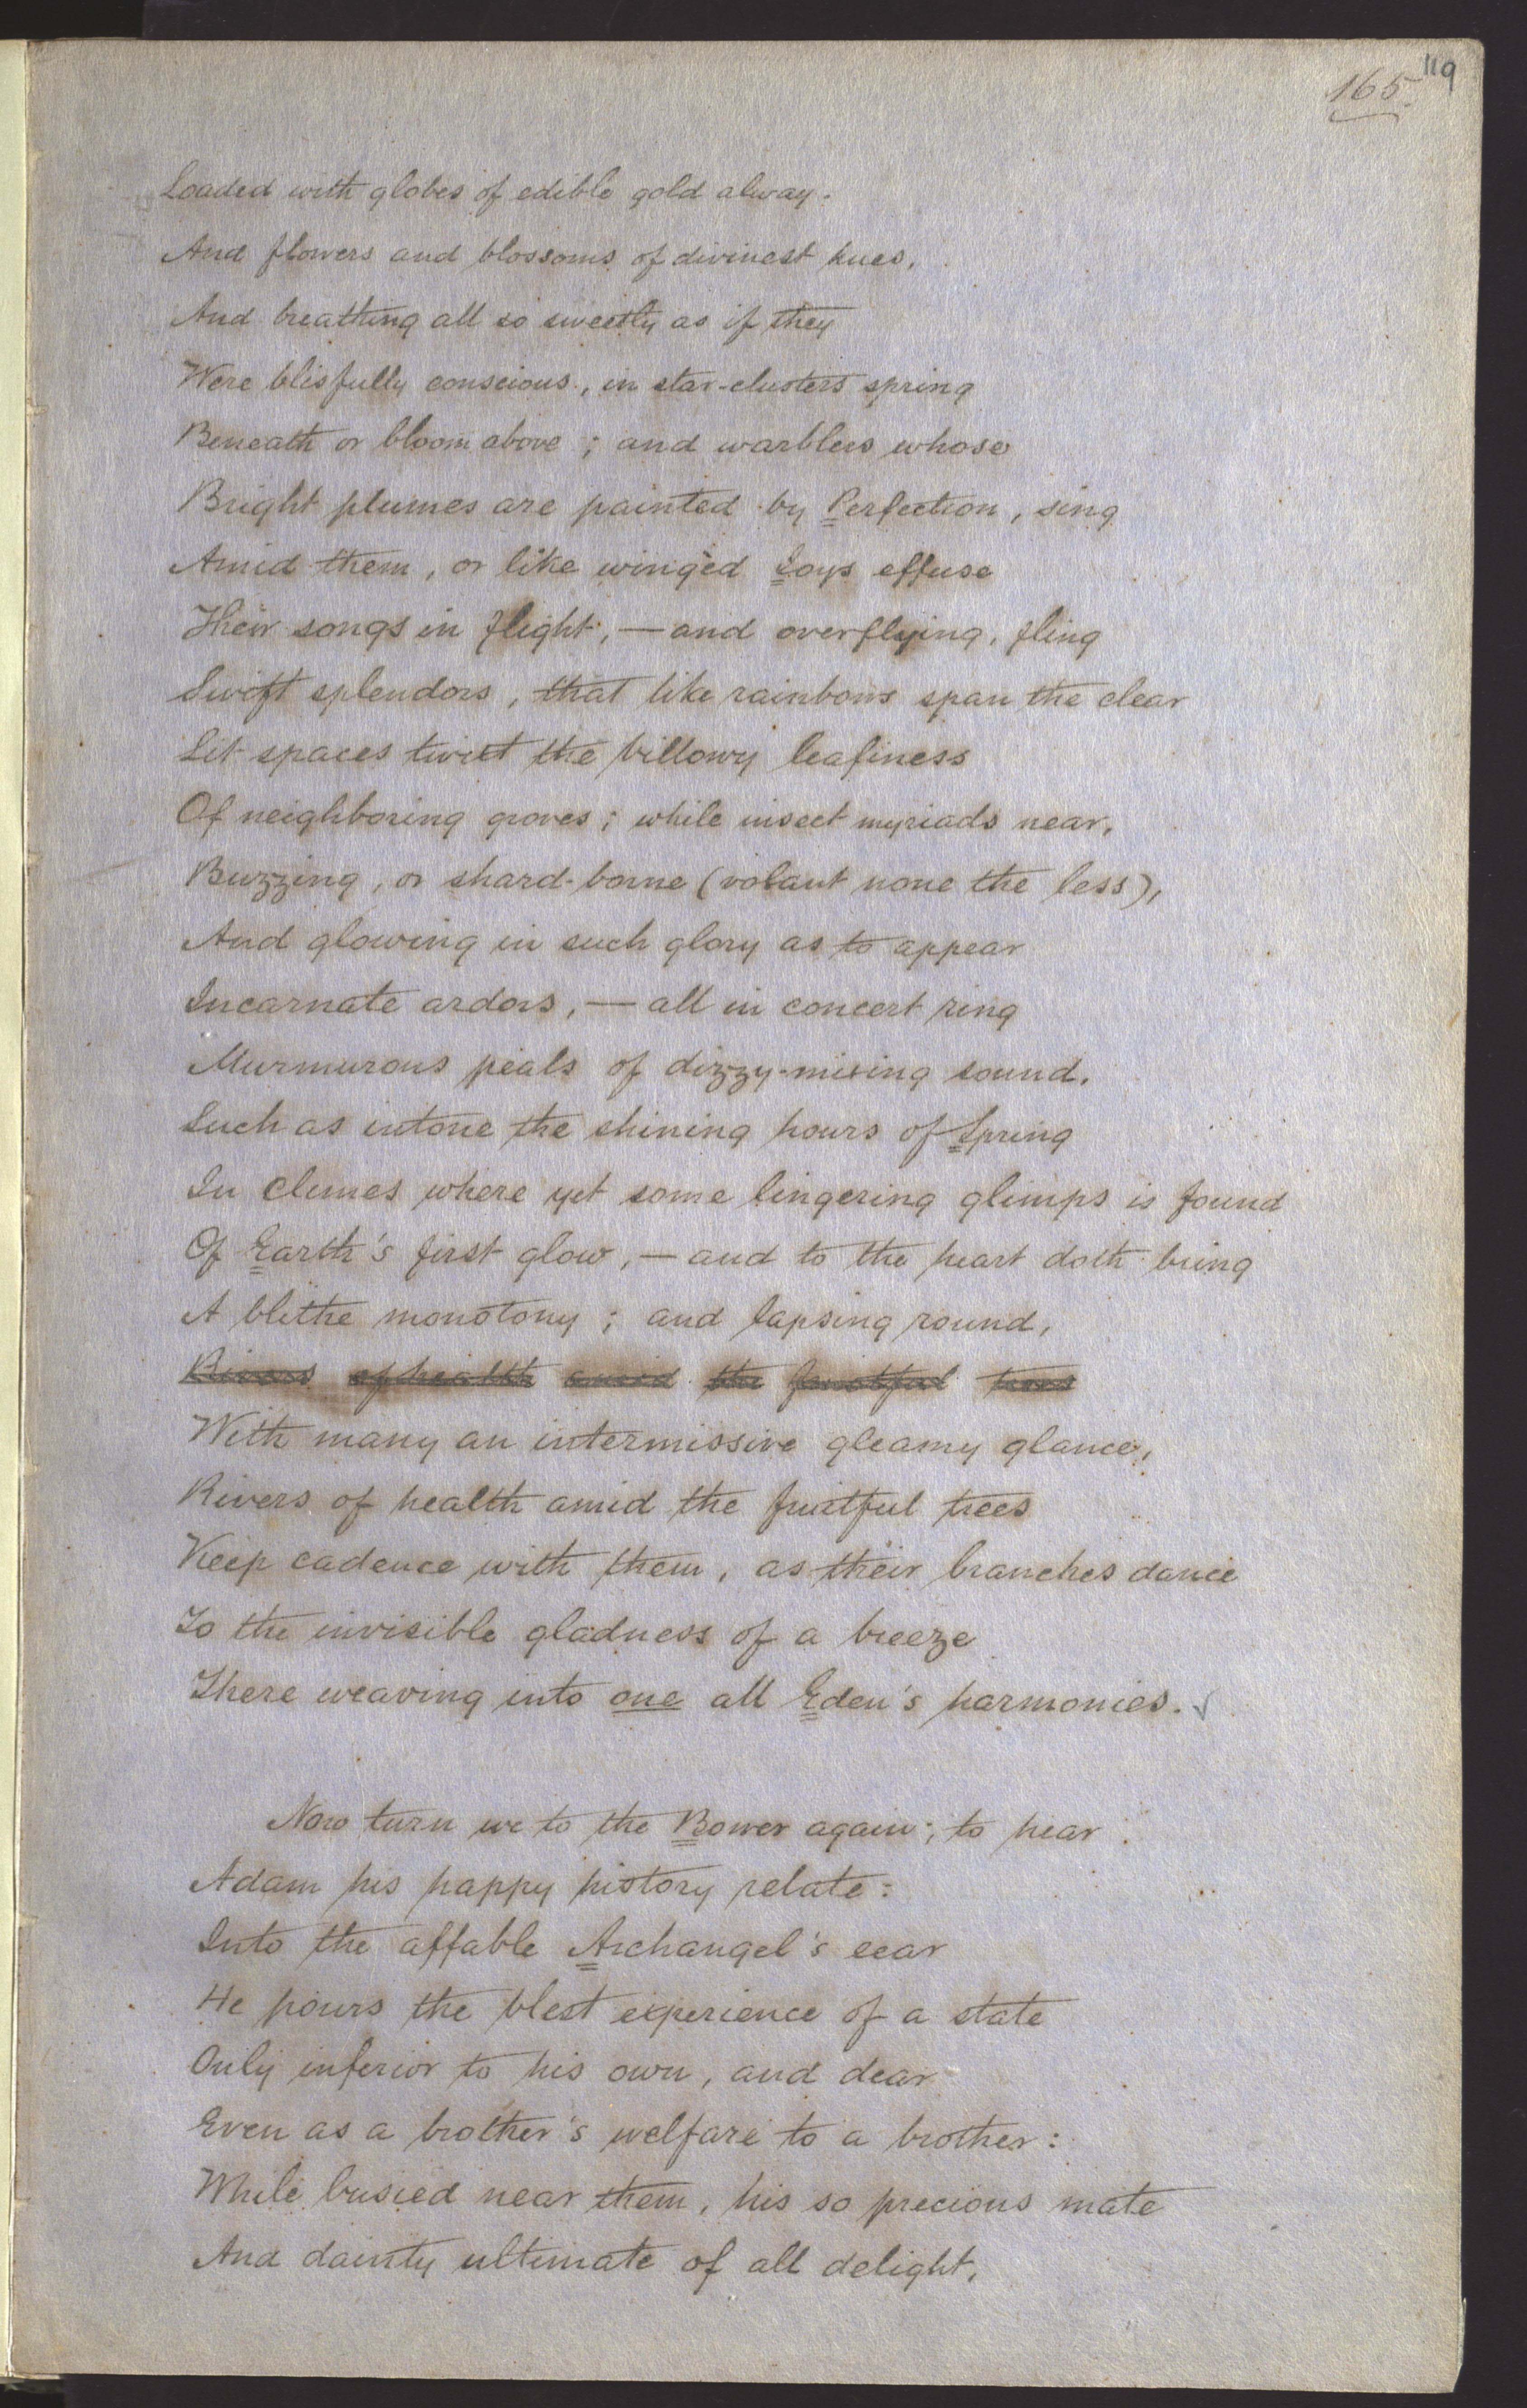 119
165.
Loaded with globes of edible gold alway.
And flowers and blossoms of divinest hues,
And breathing all so sweetly as if they
Were blisfully conscious, in star-clusters spring
Beneath or bloom above; and warblers whose
Bright plumes are painted by Perfection, sing
Amid them, or like wingèd Joys effuse
Their songs in flight, — and overflying, fling
Swift splendors, that like rainbows span the clear
Lit spaces twixt the billowy leafiness
Of neighboring groves; while insect myriads near,
Buzzing, or shard-borne (volant none the less),
And glowing in such glory as to appear
Incarnate ardors, — all in concert ring
Murmurous peals of dizzy-mixing sound,
Such as intone the shining hours of Spring
In climes where yet some lingering glimps is found
Of Earth's first glow, — and to the heart doth bring
A blithe monotony; and lapsing round,
Rivers of health amid the fruitful trees
With many an intermissive gleamy glance,
Rivers of health amid the fruitful trees
Keep cadence with them, as their branches dance
To the invisible gladness of a breeze
There weaving into one all Eden's harmonies.
Now turn we to the Bower again; to hear
Adam his happy history relate:
Into the affable Archangel's eear
He pours the blest experience of a state
Only inferior to his own, and dear
Even as a brother's welfare to a brother:
While busied near them, his so precious mate
And dainty ultimate of all delight,